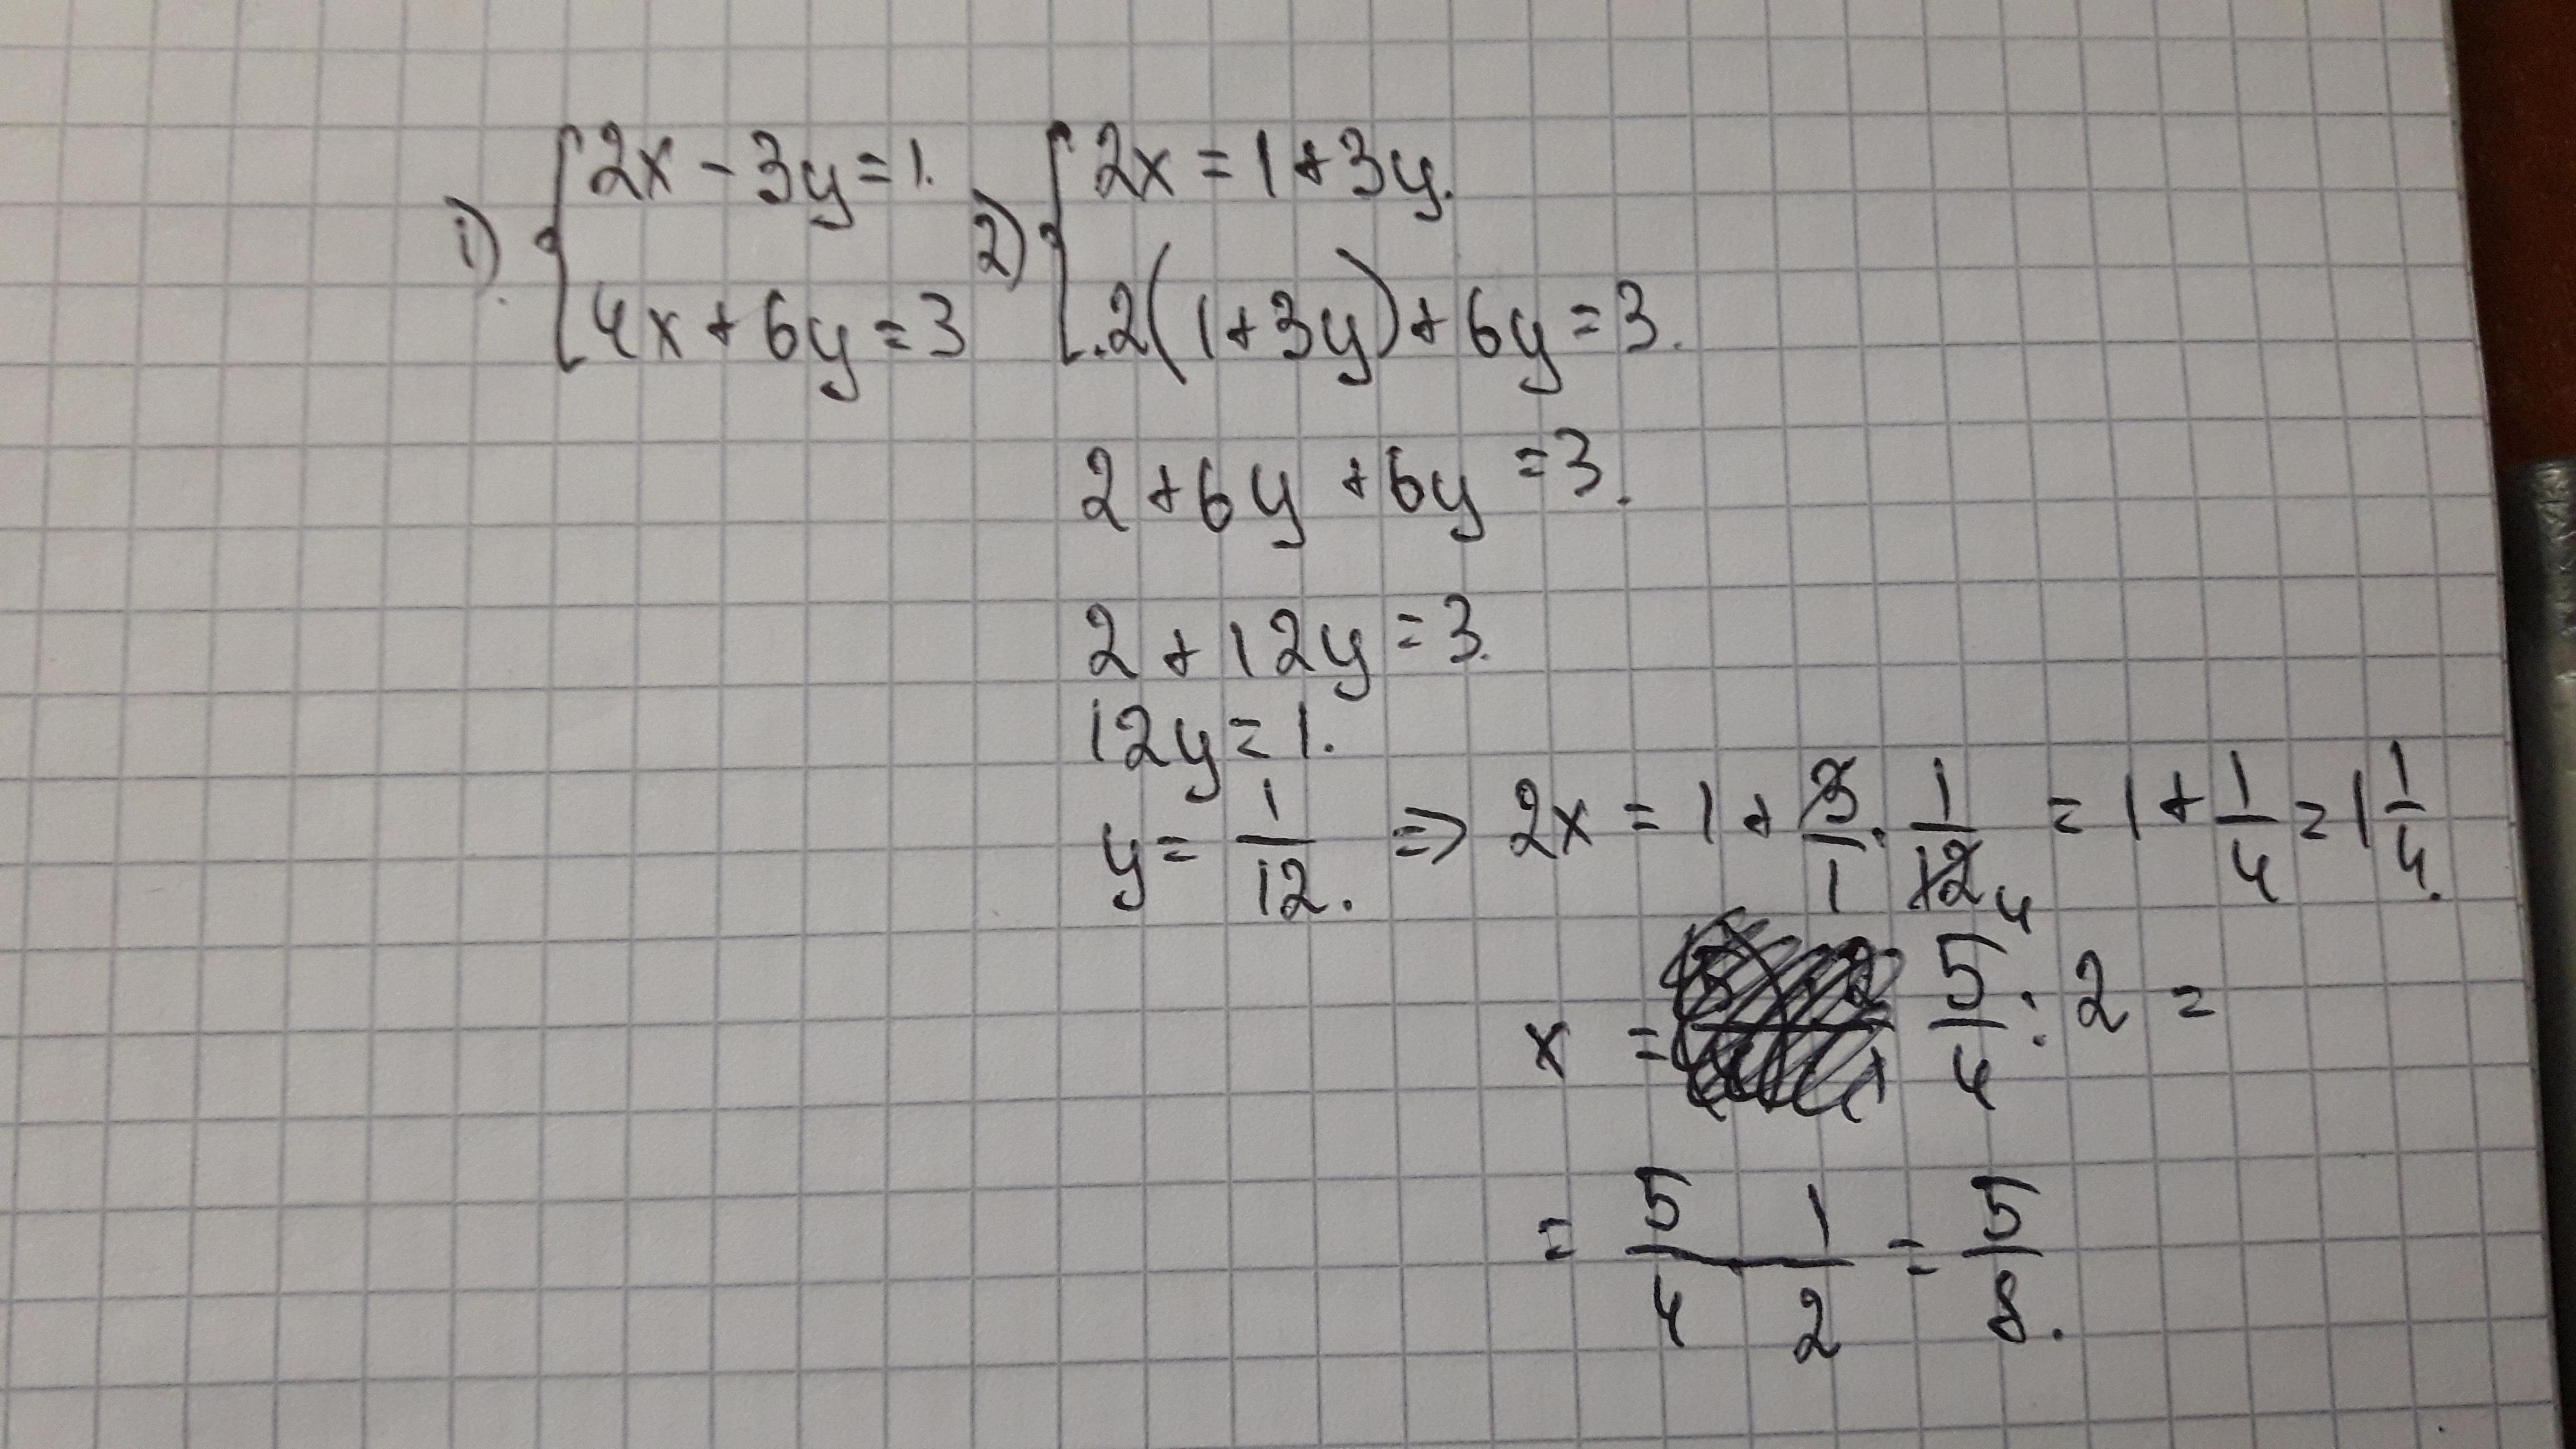 1) { 2x - 3y = 1. 2) { 2x = 1 + 3y.
4x + 6y = 3 .2(1 + 3y) + 6y = 3.
2 + 6y + 6y = 3.
2 + 12y = 3.
12y = 1.
y = 1/12. => 2x = 1 + 3/1 · 1/12 4 = 1 + 1/4 = 1 1/4.
x = 5/4 : 2 =
= 5/4 1/2 = 5/8.